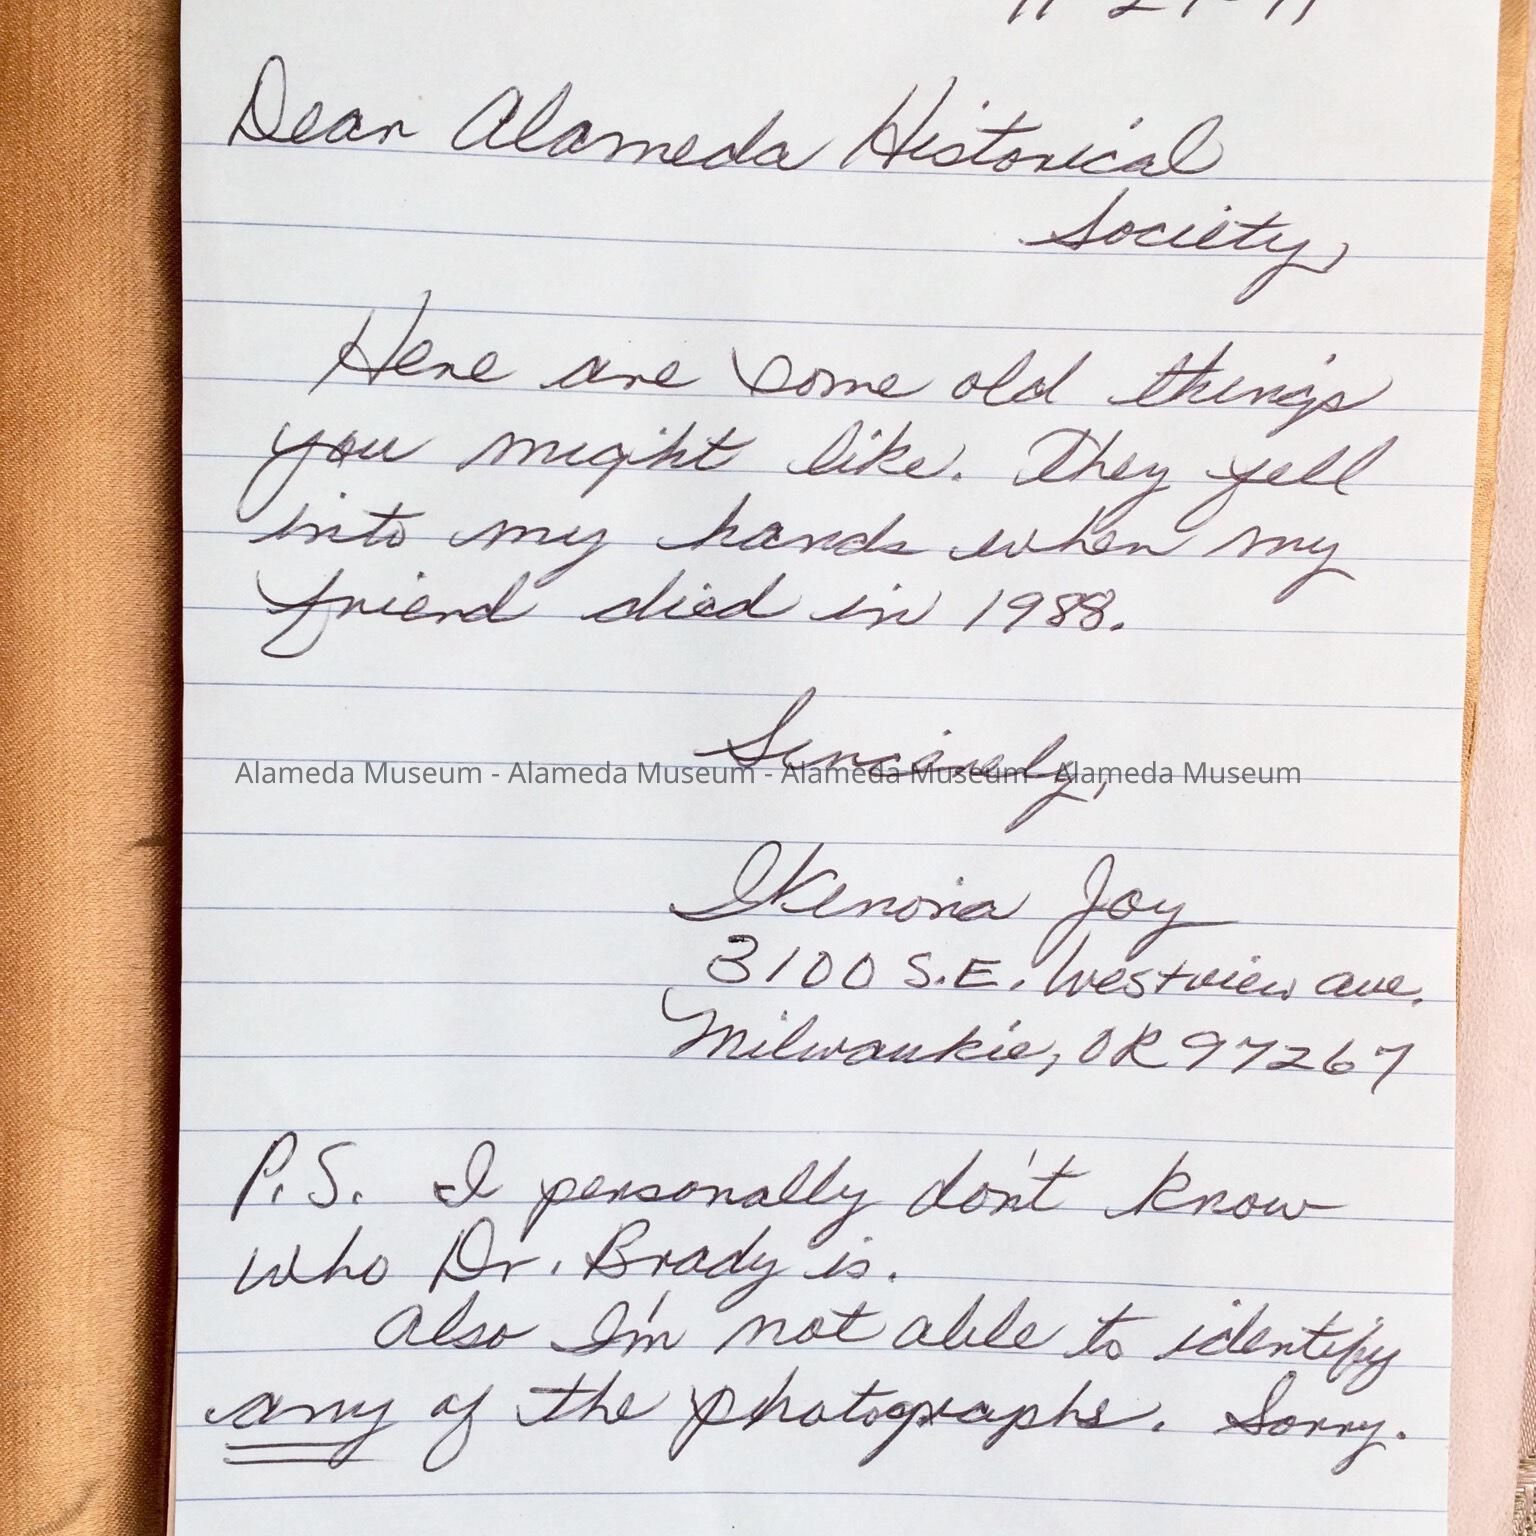 Dear Alameda Historical
Society,
Here are some old things
you might like. They fell
into my hands when my
friend died in 1988.
Sincerely,
Alameda Museum - Alameda Museum - Alameda Museum - Alameda Museum
Joy
3100 S.E. Westview ave.
Milwaukie, OR 97267
P.S. I personally don't know
who Dr. Brady is.
Also I'm not able to identify
any of the photographs. Sorry.